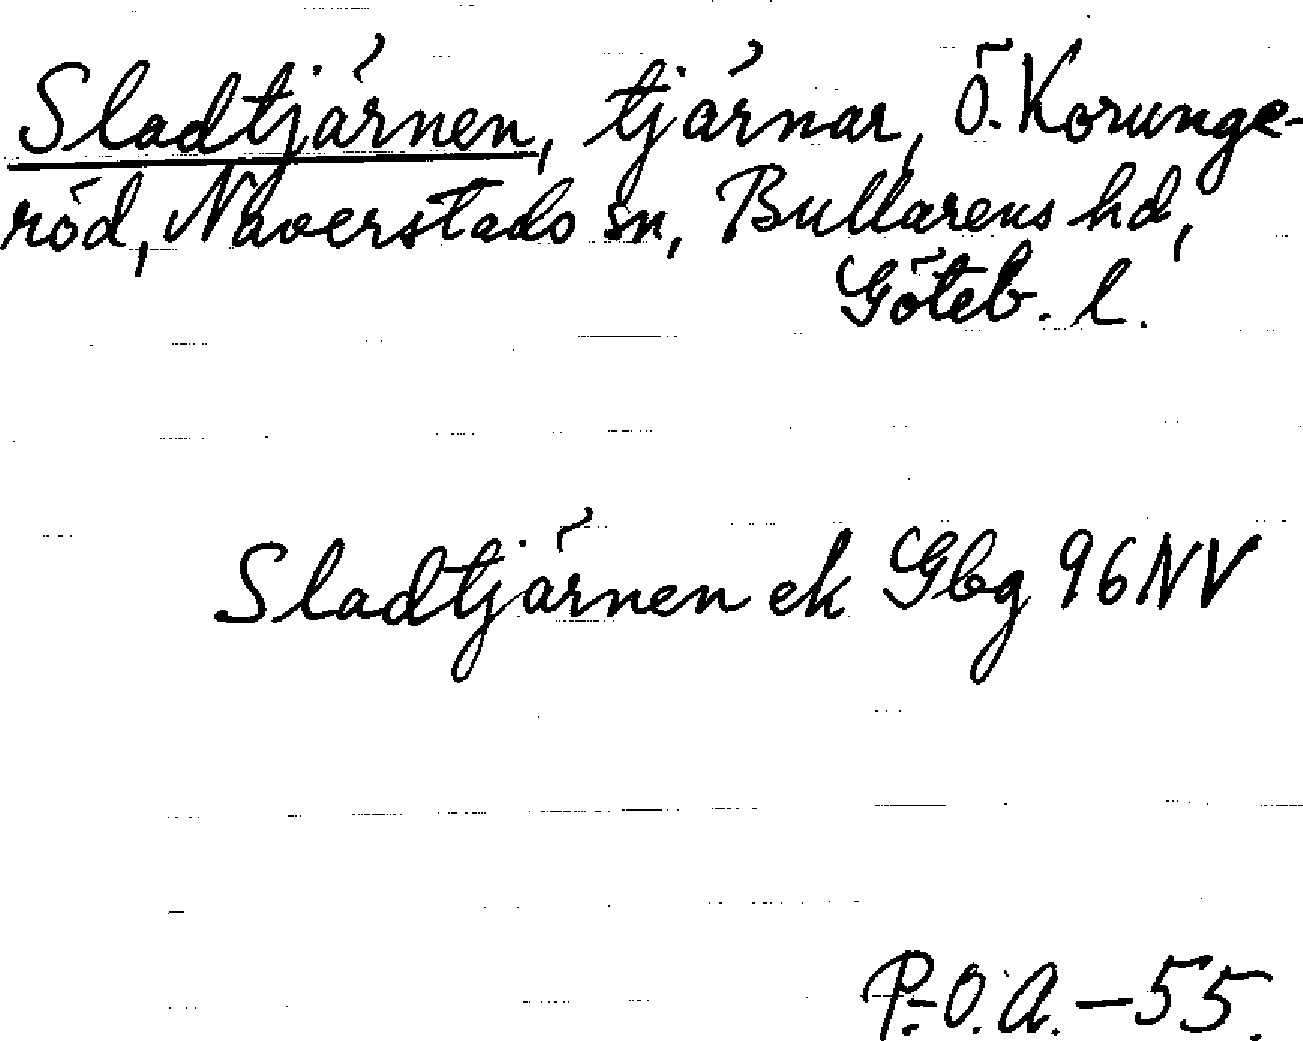 Sladtjärnen, tjärnar, Ö. Korunge-
röd, Naverstads sn, Bullarens hd,
Göteb. l.
Sladtjärnen ek Gbg 96 NV
P.-O. A. - 55.